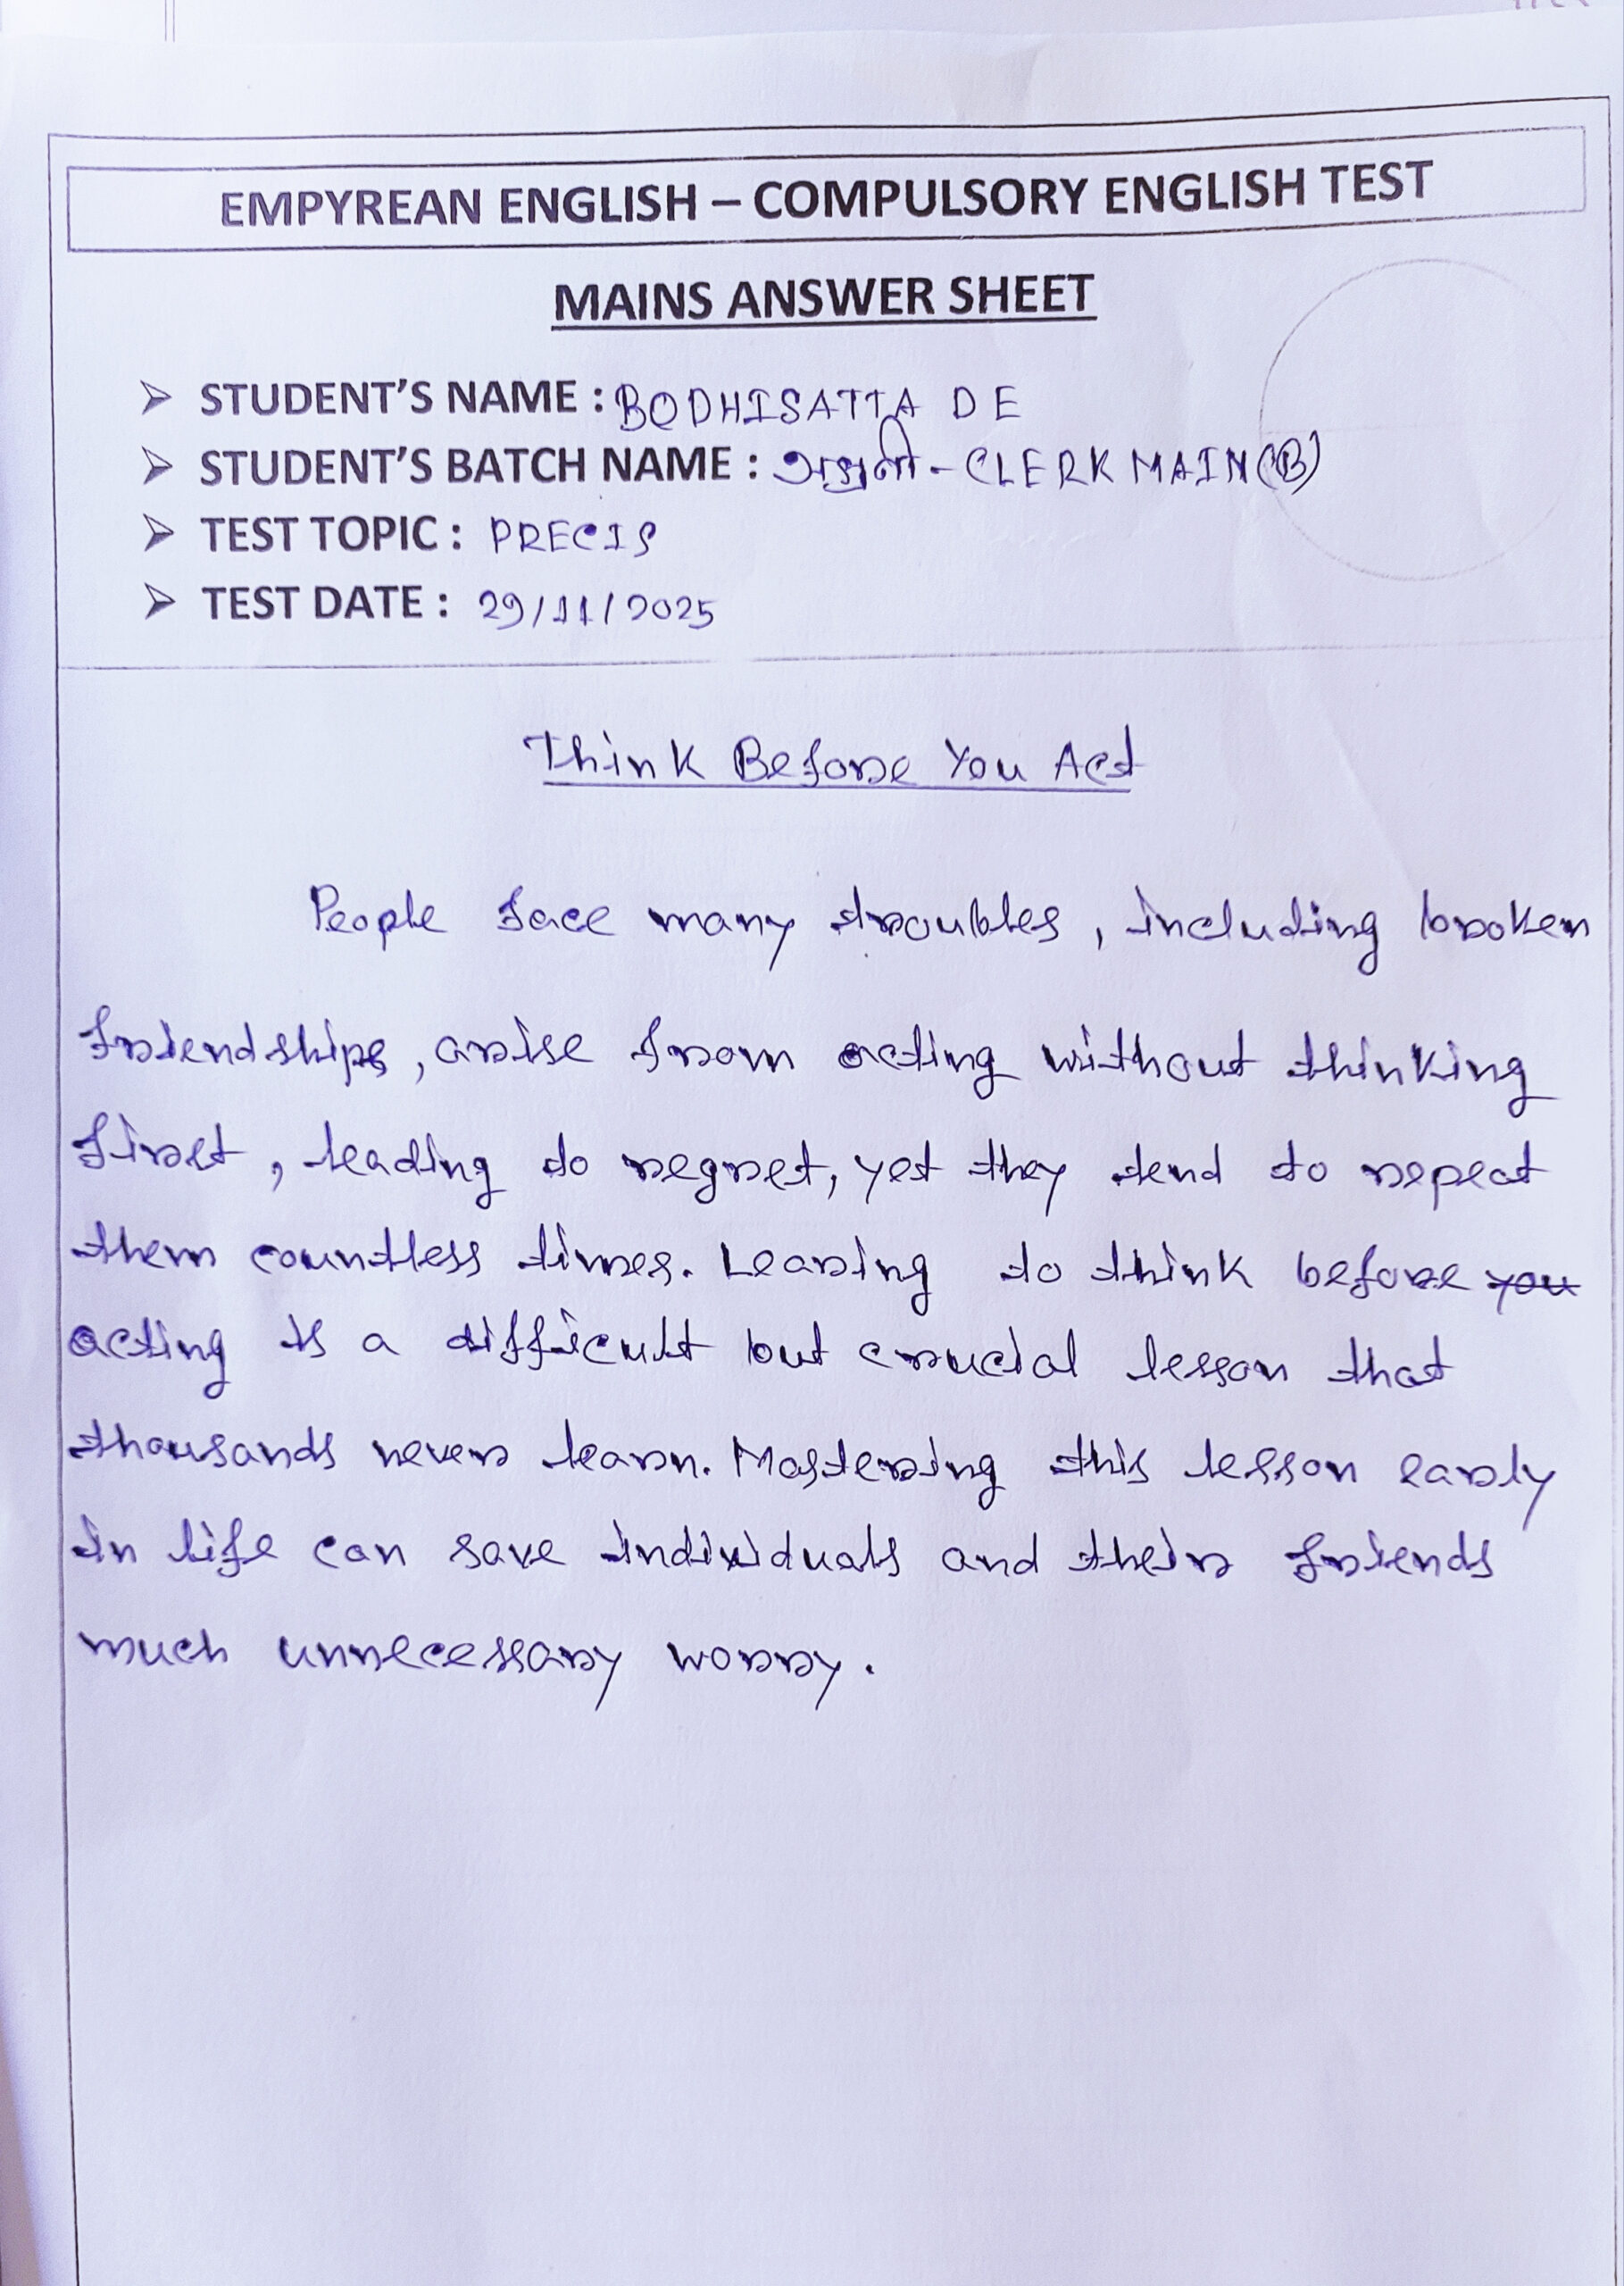 EMPYREAN ENGLISH – COMPULSORY ENGLISH TEST
MAINS ANSWER SHEET
➢ STUDENT'S NAME : BODHISATTA DE
➢ STUDENT'S BATCH NAME : - CLERK MAIN (B)
➢ TEST TOPIC : PRECIS
➢ TEST DATE : 29/11/2025
Think Before You Act
People face many troubles, including broken
friendships, arise from acting without thinking
first, leading to regret, yet they tend to repeat
them countless times. Learing to think before you
acting is a difficult but crucial lesson that
thousands never learn. Mastering this lesson early
in life can save individuals and their friends
much unnecessary worry.